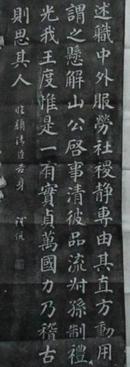 述職中外服勞社稷静專由其直方動用
謂之懸解山公啓事清彼品流叔孫制禮
光我王度惟是一有實貞萬國力乃稽古
則思其人
臨顔清臣告身